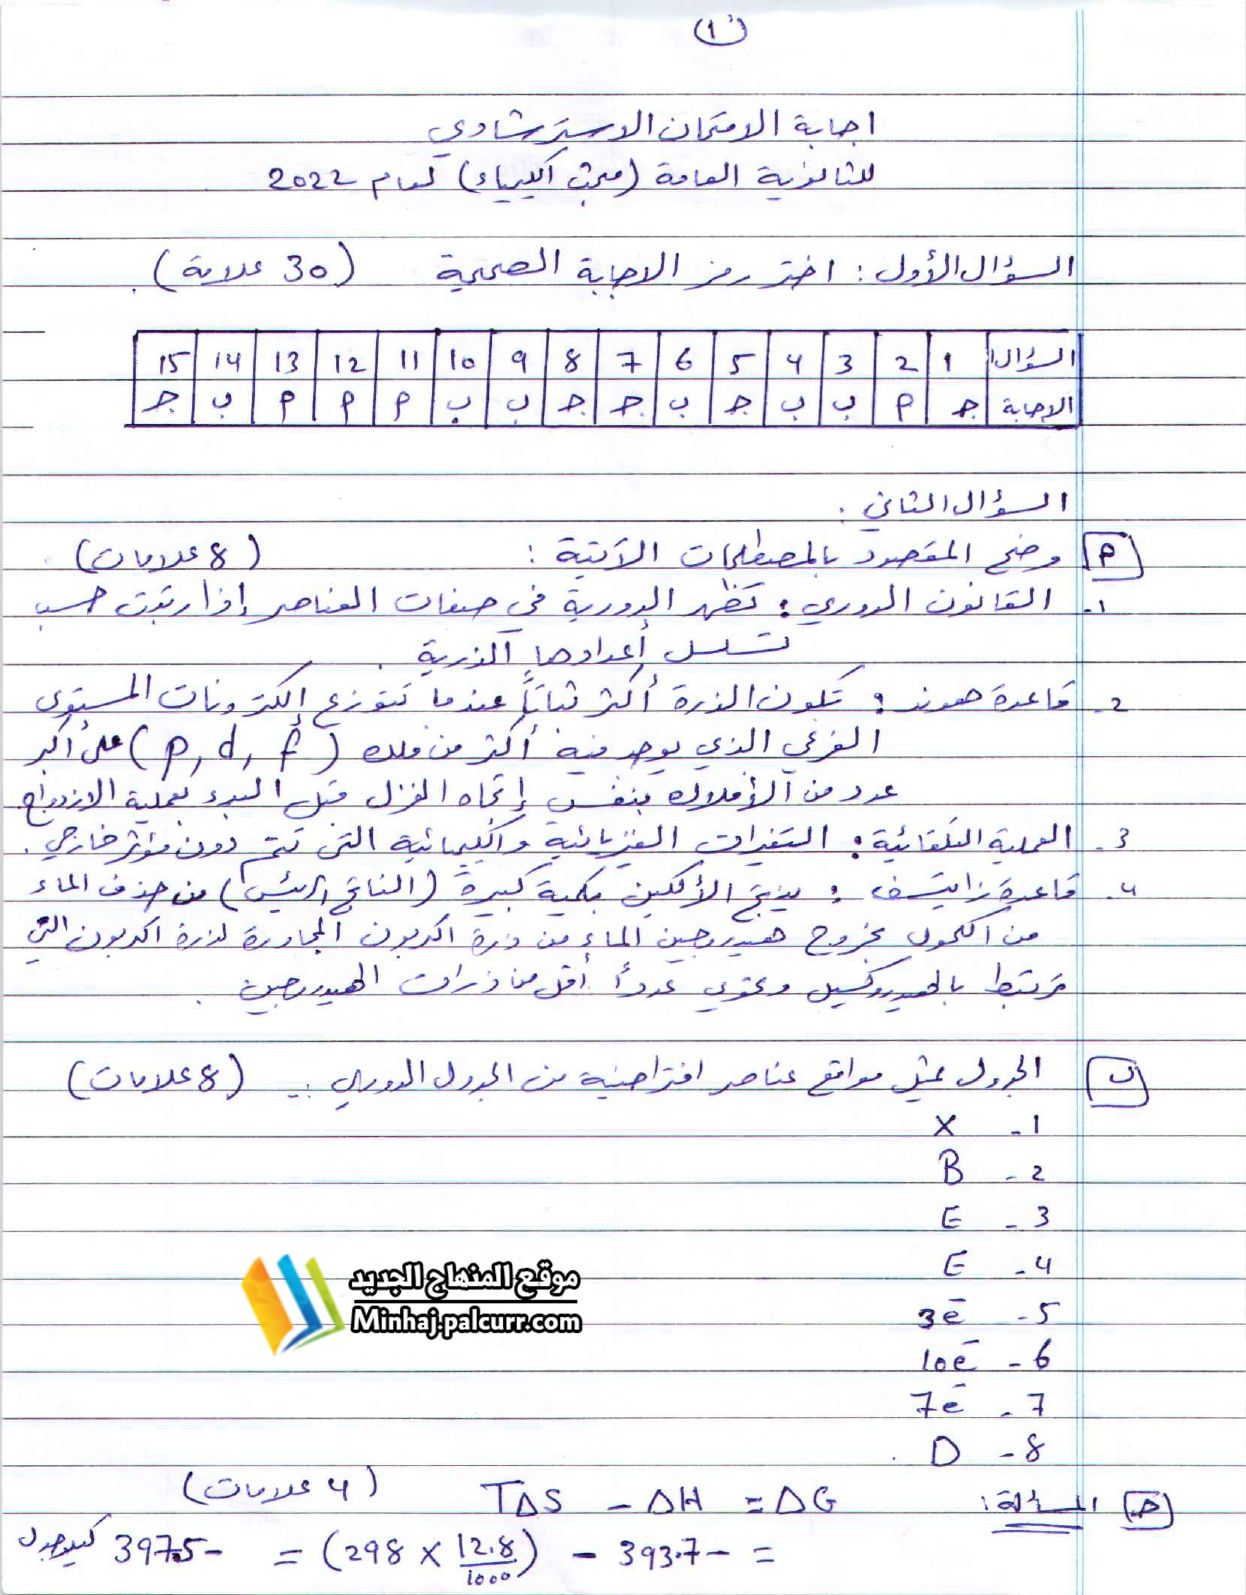 (١)
اجابة الامتحان الاسترشادي
للثانوية العامة (مبحث الكيمياء) لعام 2022
السؤال الأول : اختر رمز الاجابة الصحيحة (30 علامة) .
السؤال 1 2 3 4 5 6 7 8 9 10 11 12 13 14 15
الاجابة ج أ ب ب ج ب ج ج ب ب أ أ أ ب ج
السؤال الثاني :
أ وضح المقصود بالمصطلحات الآتية : (8 علامات)
1. القانون الدوري : تظهر الدورية في صفات العناصر إذا رتبت حسب
تسلسل أعدادها الذرية .
2. قاعدة هوند : تكون الذرة أكثر ثباتاً عندما تتوزع إلكترونات المستوى
الفرعي الذي يوجد فيه أكثر من فلك (p, d, f) على أكبر
عدد من الأفلاك بنفس إتجاه الغزل قبل البدء بعملية الازدواج
3. العملية التلقائية : التغيرات الفيزيائية والكيميائية التي تتم دون مؤثر خارجي .
4. قاعدة زايتسف : ينتج الألكين بكمية كبيرة (الناتج الرئيس) من حذف الماء
من الكحول بخروج هيدروجين الماء من ذرة الكربون المجاورة لذرة الكربون التي
ترتبط بالهيدروكسيل وتحوي عدداً أقل من ذرات الهيدروجين .
ب الجدول يمثل مواقع عناصر افتراضية من الجدول الدوري :- (8 علامات)
1- X
2- B
3- E
4- E
5- 3e⁻
6- 10e⁻
7- 7e⁻
8- D .
موقع المنهاج الجديد
Minhaj.palcurr.com
ج المسألة : ΔG = ΔH - TΔS (4 علامات)
= -393.7 - (298 × 12.8/1000) = -397.5 كيلوجول